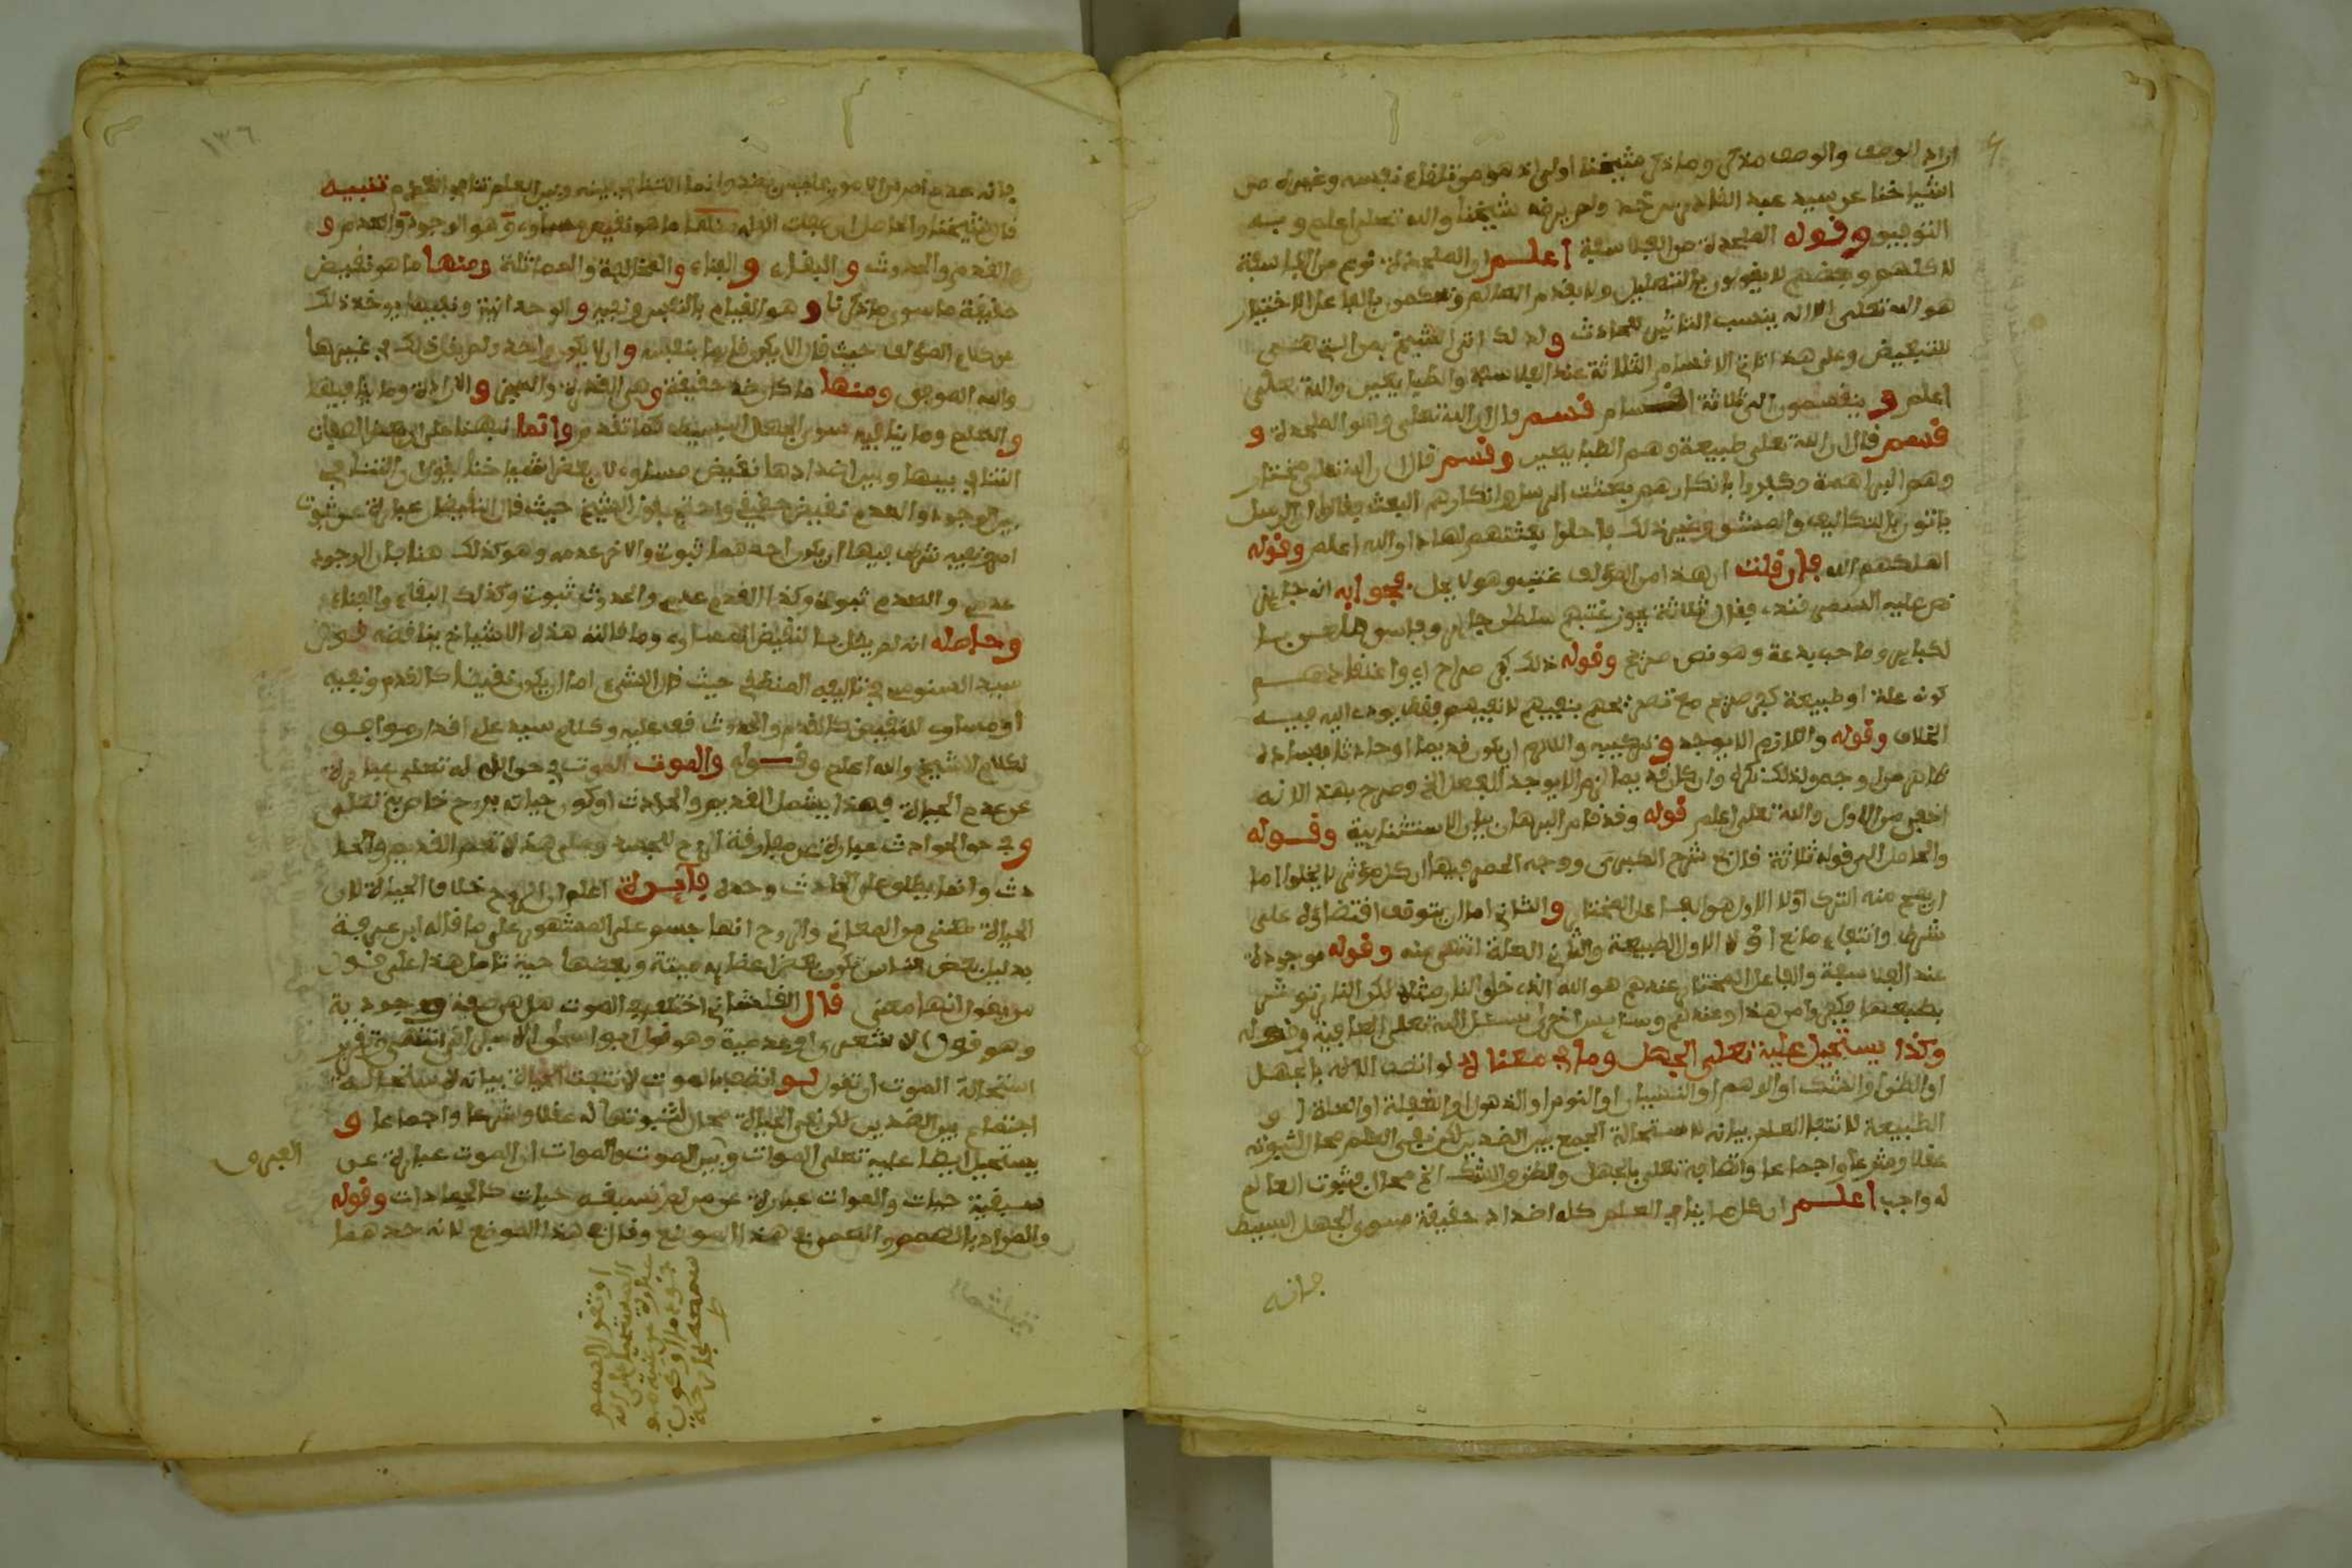 اراد الوصف والوصف ملازم وما ذكر شيخنا اولى اذ هو من تلقاء نفسه وغيره من
اشياخنا عن سيد عبد القادر بن خد ولم يرضه شيخنا والله تعلى اعلم وبه
التوفيق وقوله الملحدة من الفلاسفة اعلم ان الملحدة نوع من الفلاسفة
لا كلهم وبعضهم لا يقولون بالتعليل ولا بقدم العالم ويحكمون بالفاعل الاختيار
هو الله تعلى الا انه ينسب التاثير للحادث ولذلك اتى الشيخ بمن التي هي
للتبعيض وعلى هذا تاتي الاقسام الثلاثة عند الفلاسفة والطبايعيين والله تعلى
اعلم وينقسمون الى ثلاثة اقسام قسم قال ان الله تعلى وهو الملحدة و
قسم قال ان الله تعلى طبيعة وهم الطبايعيين وقسم قال ان الله تعلى مختار
وهم البراهمة وكفروا بانكارهم بعثت الرسل وانكارهم البعث فقالوا ان الرسل
ياتون بالتكاليف والمشو وغير ذلك فاحلوا بعثتهم لهذا والله اعلم وقوله
اهلكهم الله فان قلت ان هذا من المؤلف غيب وهو لا يحل فجوابه انه جايز
نص عليه السمرقند فقال ثلاثة يجوز غيبتهم سلطان جاير وفاسق معلن با
لكباير وصاحب بدعة وهو نص صريح وقوله ذلك كفر صراح اي واعتقادهم
كونه علة او طبيعة كفر صريح مع تصريحهم بنفيهم لا نفيهم فقط يودي اليه ففيه
الخلاف وقوله واللازم الا يوجد وتركيبه واللازم ان يكون قديما او حادثا ففساده
ظاهر من وجه ولذلك تركه وان كان قديما لزم الا يوجد الفعل الخ وصرح بهذا لانه
اخفى من الاول والله تعلى اعلم قوله وقد قام البرهان بيان الاستثنايية وقوله
والحاصل الى قوله ثلاثة قال في شرح الكبرى ووجه الحصر فيها ان كل مؤثر لا يخلوا اما
ان يصح منه الترك اولا الاول هو الفاعل المختار والثاني اما ان يتوقف اقتضاؤه على
شرط وانتفاء مانع او لا الاول الطبيعة والثاني العلة انتهى منه وقوله موجودة
عند الفلاسفة والفاعل المختار عندهم هو الله الذي خلق النار مثلا لكن النار توثر
بطبعها فكفروا من هذا وعندهم وساوس اخرى نسئل الله تعلى العافية وقوله
وكذا يستحيل عليه تعلى الجهل وما في معناه اذ لو اتصف الاله بالجهل
او الظن او الشك او الوهم او النسيان او النوم او الذهول او الغفلة او العلة او
الطبيعة لانتفا العلم بيانه لاستحالة الجمع بين الضدين لكن نفي العلم محال لثبوته
عقلا وشرعا واجماعا واتصافه تعلى بالجهل والظن والشك الخ محال فثبوت العلم
له واجب اعلم ان كل ما ينافي العلم كله اضداد حقيقة سوى الجهل البسيط
فانه
١٣٦
فانه عدم امر من الامور فليس بضد وانما التنافي بينه وبين العلم تنافي العدم تنبيه
قال شيخنا والحاصل ان صفات الاله منها ما هو نقيض ومساو وهو الوجود والعدم و
القدم والحدوث والبقاء والفناء والمخالفة والمماثلة ومنها ما هو نقيض
حقيقة ما سوى ما ذكرنا وهو القيام بالنفس ونفيه والوحدانية ونفيها يوخذ ذلك
من كلام المؤلف حيث قال الا يكون قايما بنفسه وان لا يكون واحدا ولم يقل ذلك في غيرها
والله الموفق ومنها ما كان ضد حقيقة وهي القدرة والعجز والارادة وما ينافيها
والعلم وما ينافيه سوى الجهل البسيط كما تقدم وانما نبهنا على ان بعض الصفات
التنافي بينها وبين اضدادها نقيض مساو لان بعض اشياخنا يقول ان التنافي
بين الوجود والعدم نقيض حقيقي واحتج بقول الشيخ حيث قال التناقض عبارة عن ثبوت
امر ونفيه شرط فيها ان يكون احدهما ثبوت والاخر عدمه وهو كذلك هنا فان الوجود
عدم والعدم ثبوت وكذا القدم عدم والحدوث ثبوت وكذلك البقاء والفناء
وحاصله انه لم يقل بالنقيض المساو وما قالته هذه الاشياخ يناقضه قول
سيد السنوسي في تاليفه المنطقي حيث قال الشيء اما ان يكون نقيضا كالقدم ونفيه
او مساو للنقيض كالقدم والحدوث قف عليه وكلام سيد علي اقدار موافق
لكلام الشيخ والله اعلم وقوله والموت الموت في حق الاله تعلى عبارة
عن عدم الحياة فهذا يشمل القديم والحادث او كون حياته بروح خاص به تعلى
وفي حق الحوادث عبارة عن مفارقة الروح للجسد وعلى هذا لا تعم القديم والحا
دث وانما يطلق على الحادث وحده فايدة اعلم ان الروح خلاف الحياة لان
الحياة معنى من المعاني والروح انها جسم على المشهور على ما قاله ابن عرفة
بدليل بعض الناس تكون بعض اعضايه ميتة وبعضها حية تامل هذا على قول
من يقول انها معنى قال القلشاني اختلف في الموت هل هي صفة وجودية
وهو قول الاشعري او عدمية وهو قول ابو اسحاق الاسفرايني انتهى تقرير
استحالة الموت ان تقول لو اتصف بالموت لانتفت الحياة بيانه لاستحالة
اجتماع بين الضدين لكن نفي الحياة محال لثبوتها له عقلا وشرعا واجماعا و
يستحيل ايضا عليه تعلى الموات وبين الموت والموات ان الموت عبارة عن
الفرق
سبقية حيات والموات عبارة عن من لم تسبقه حيات كالجمادات وقوله
والمراد بالصمم والعمى في هذا الموضع وقال في هذا الموضع لانه حدهما
او تقول الصمم
المستحيل على الله
عبارة عن غيبة مو
جود ما او كون
سمعه بجارحة